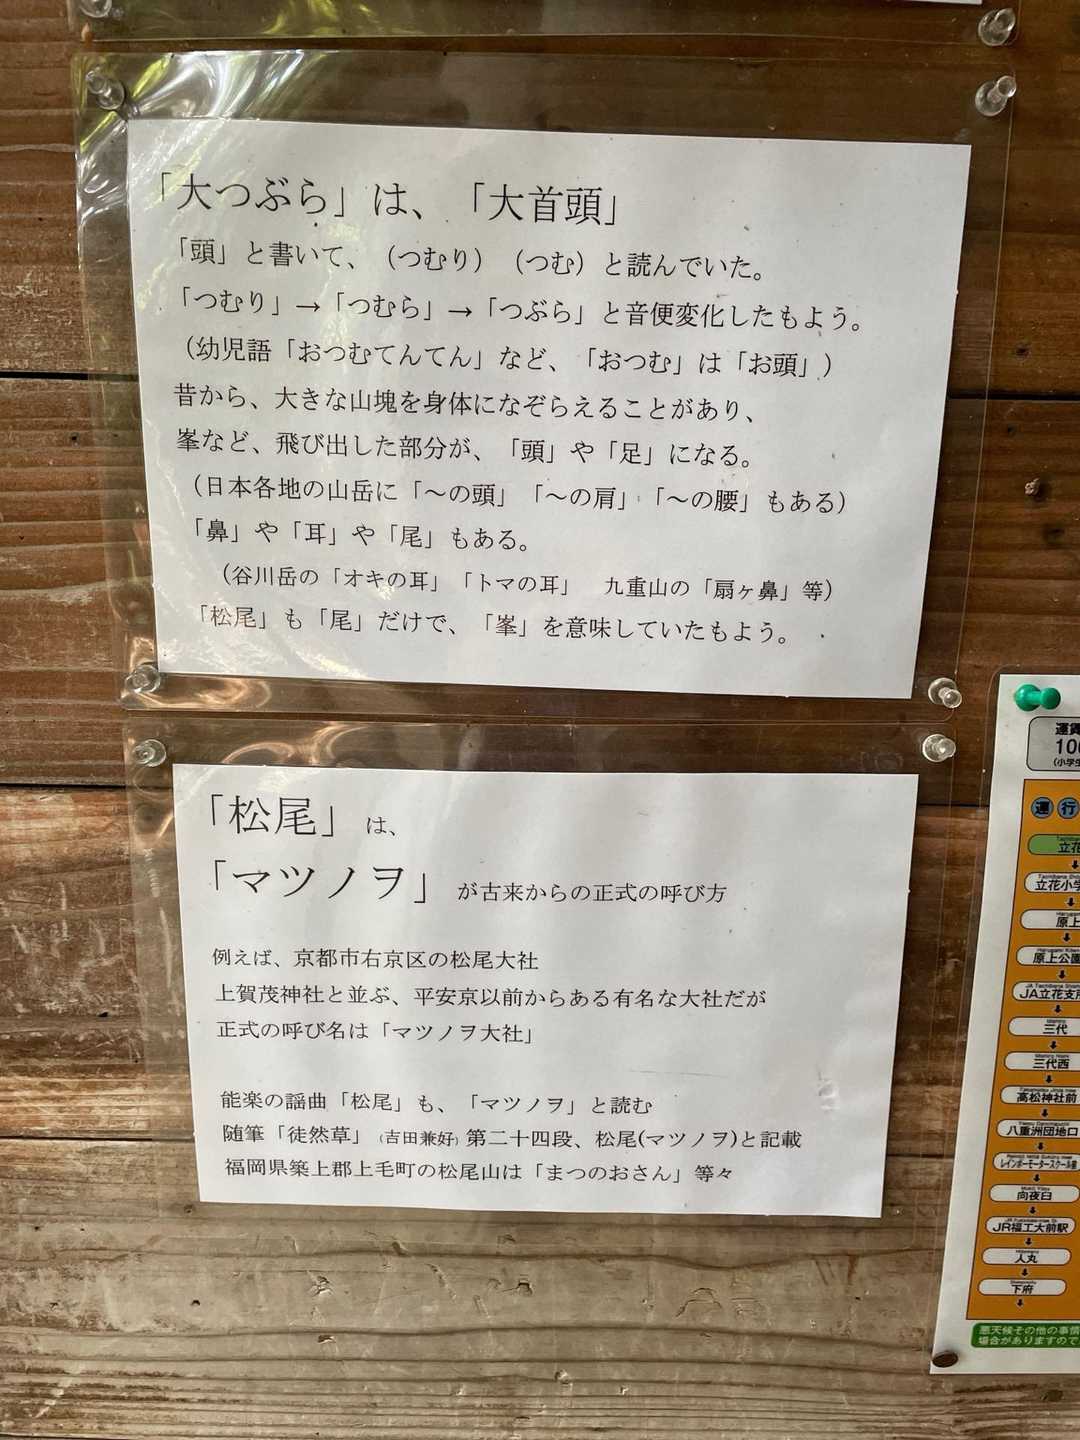 「大つぶら」は、「大首頭」
「頭」と書いて、（つむり）（つむ）と読んでいた。
「つむり」→「つむら」→「つぶら」と音便変化したもよう。
（幼児語「おつむてんてん」など、「おつむ」は「お頭」）
昔から、大きな山塊を身体になぞらえることがあり、
峯など、飛び出した部分が、「頭」や「足」になる。
（日本各地の山岳に「～の頭」「～の肩」「～の腰」もある）
「鼻」や「耳」や「尾」もある。
（谷川岳の「オキの耳」「トマの耳」　九重山の「扇ヶ鼻」等）
「松尾」も「尾」だけで、「峯」を意味していたもよう。
「松尾」は、
「マツノヲ」が古来からの正式の呼び方
例えば、京都市右京区の松尾大社
上賀茂神社と並ぶ、平安京以前からある有名な大社だが
正式の呼び名は「マツノヲ大社」
能楽の謡曲「松尾」も、「マツノヲ」と読む
随筆「徒然草」（吉田兼好）第二十四段、松尾(マツノヲ)と記載
福岡県築上郡上毛町の松尾山は「まつのおさん」等々
運賃
100
(小学生
運行
立花
立花小学
原上
原上公園
JA立花支所
三代
三代西
高松神社前
八重洲団地口
レインボーモータースクール前
向夜臼
JR福工大前駅
人丸
下府
悪天候その他の事情
場合がありますので